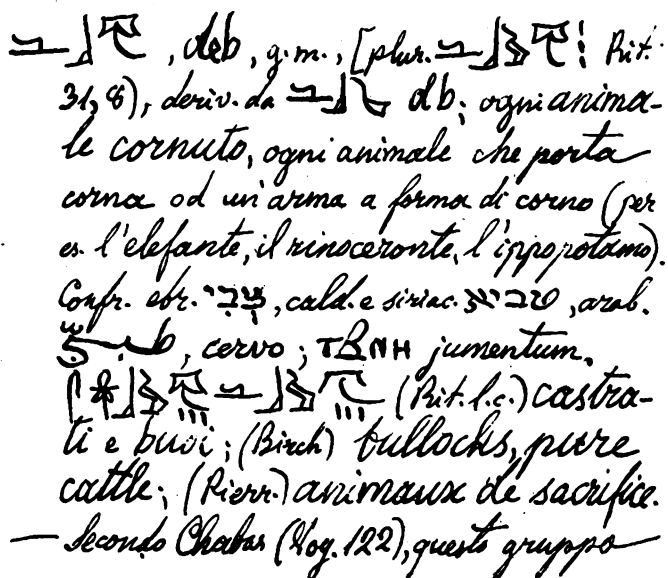 , deb, g. m., [plur. Rit.
31, 8), deriv. da db; ogni anima-
le cornuto, ogni animale che porta
corna od un'arma a forma di corno (per
es. l'elefante, il rinoceronte, l'ippopotamo).
Confr. ebr. צְבִי, cald. e siriac. טביא, arab.
, cervo; ⲧⲃⲛⲏ jumentum.
(Rit. l. c.) castra-
ti e buoi; (Birch) bullocks, pure
cattle; (Pierr.) animaux de sacrifice.
— Secondo Chabas (Voy. 122), questo gruppo